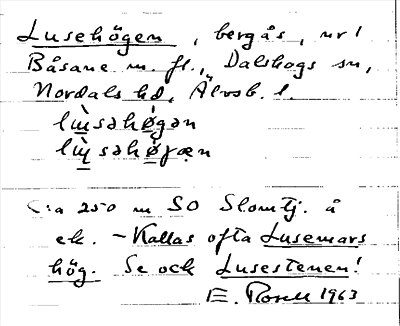 Lusehögen, bergås, nr 1
Båsane m. fl., Dalskogs sn,
Nordals hd, Älvsb. l.
lɯ̀sahö̀gan
lɯ̀sahö̀gæn
C:a 250 m SO Slomtj. å
ek. – Kallas ofta Lusemars
hög. Se och Lusestenen!
E. 1963